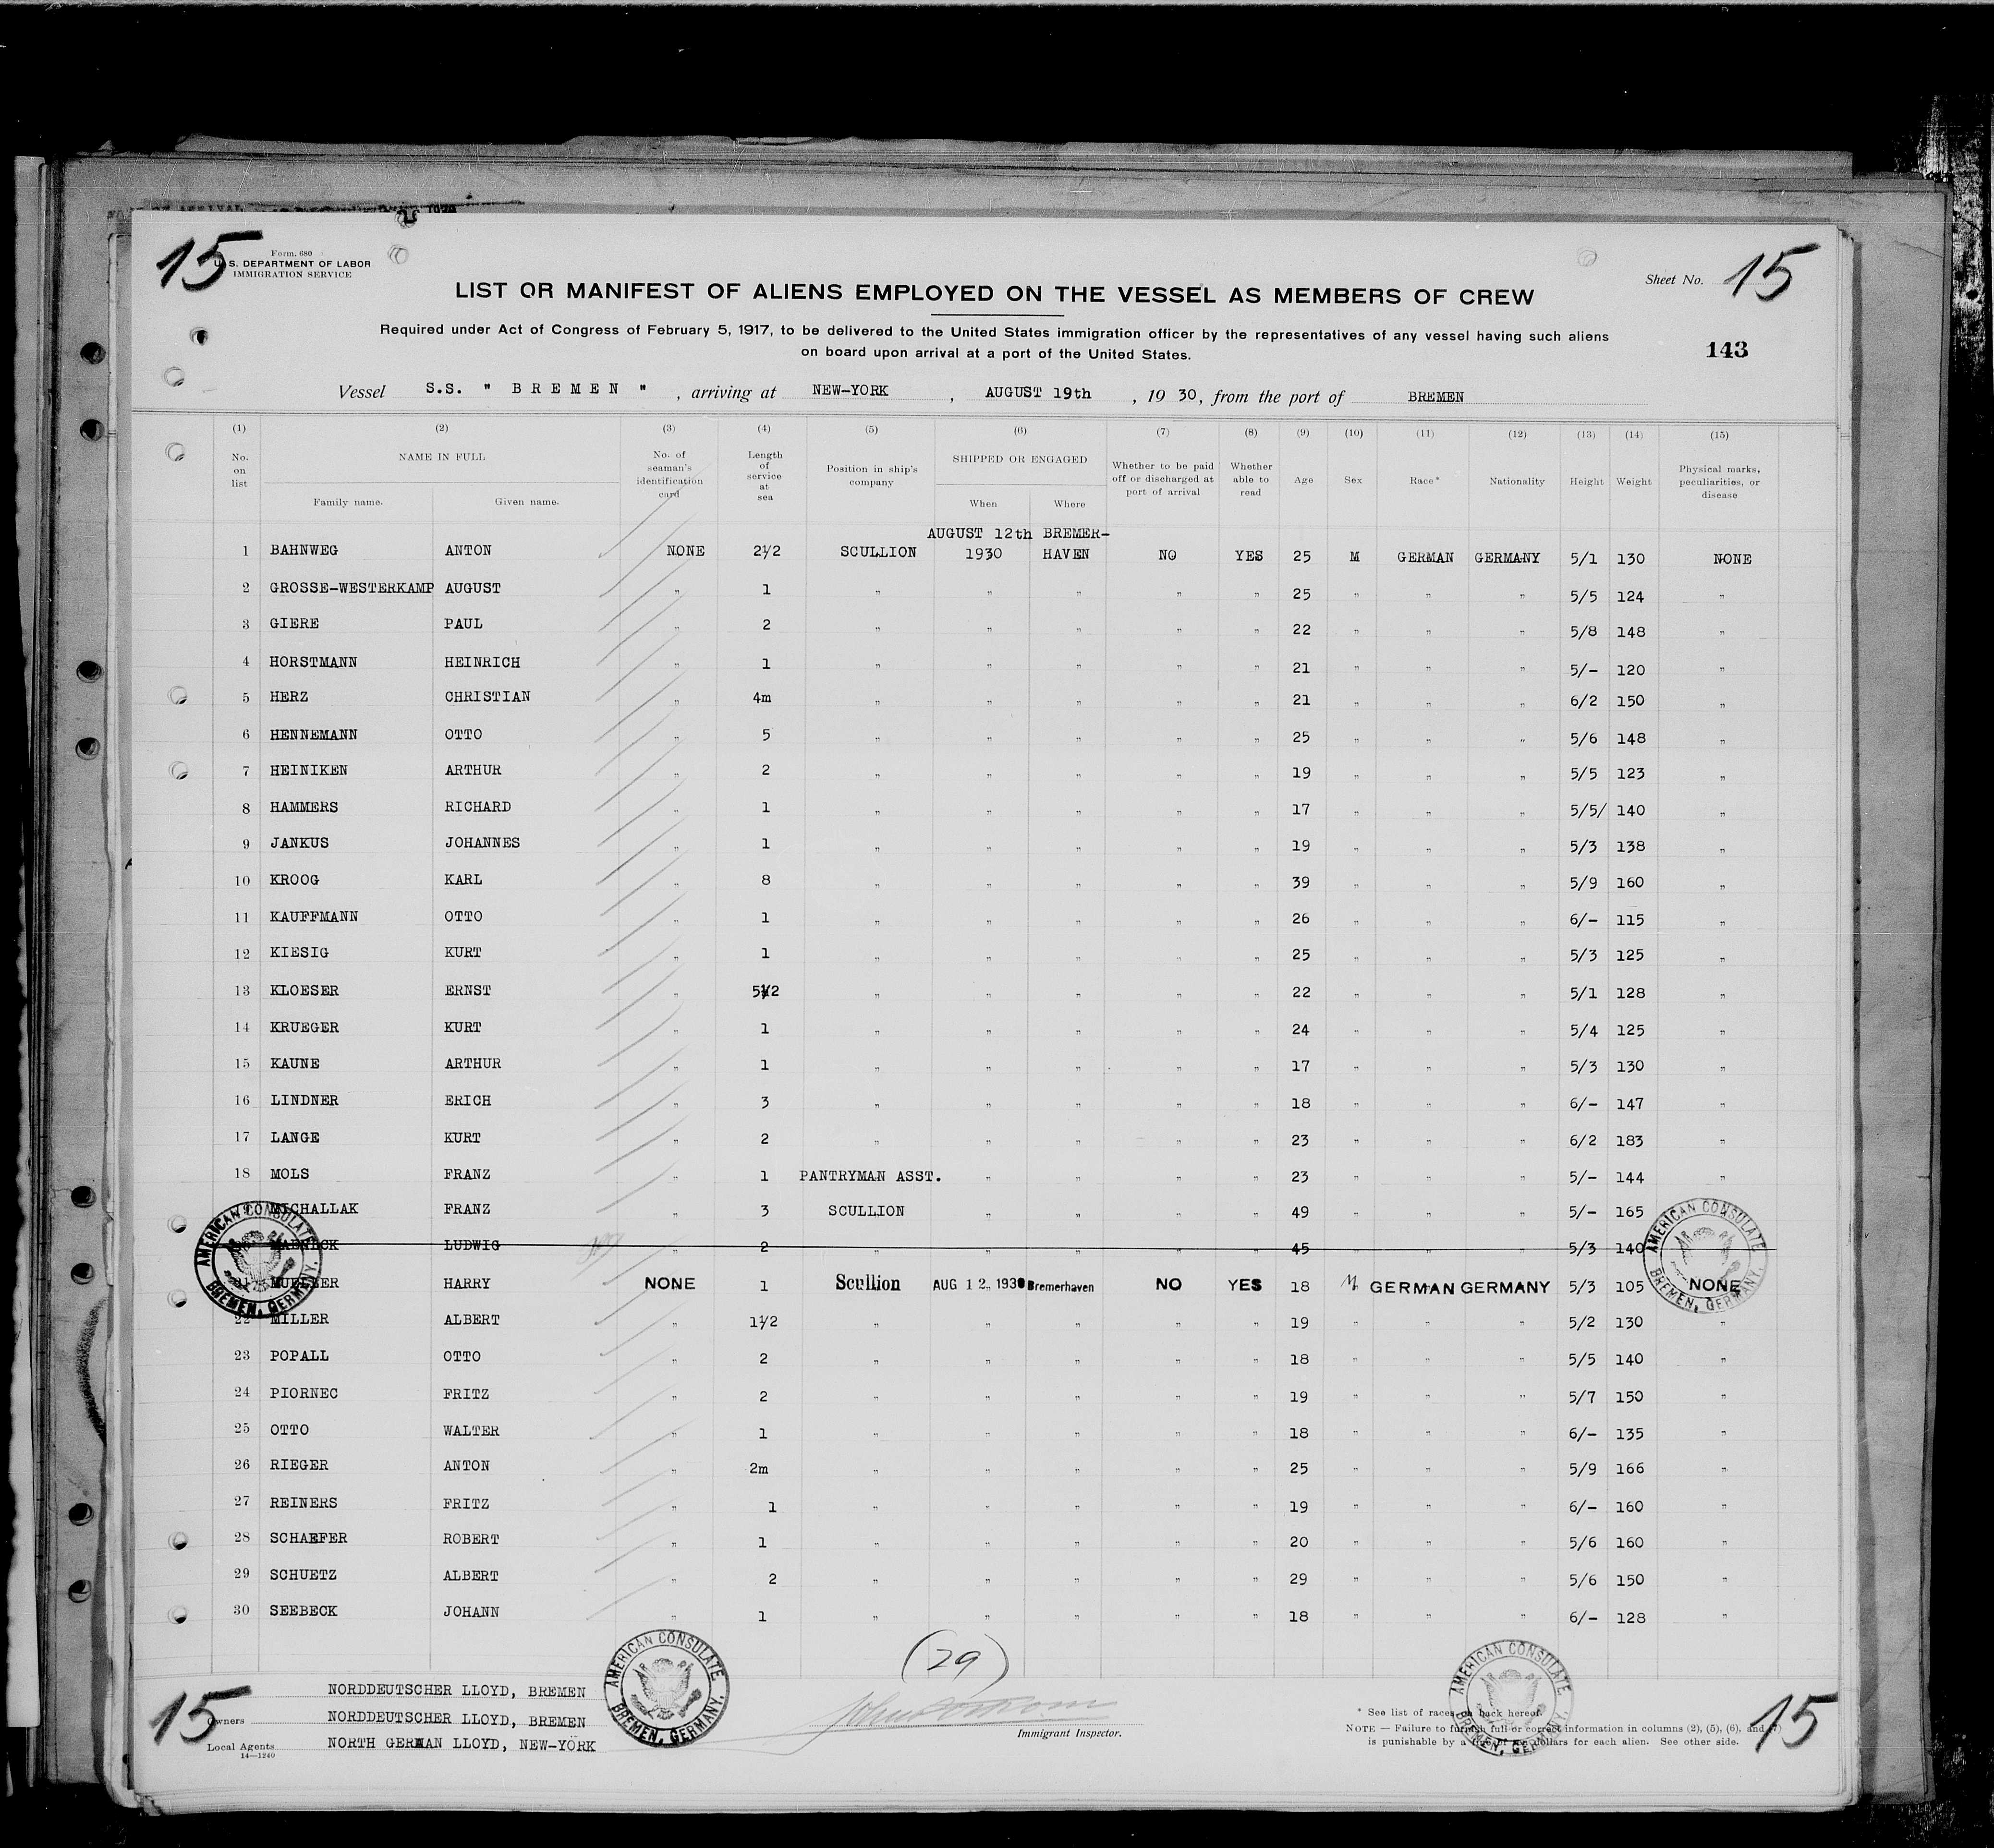 15
Form. 680
U. S. DEPARTMENT OF LABOR
IMMIGRATION SERVICE
Sheet No. 15
LIST OR MANIFEST OF ALIENS EMPLOYED ON THE VESSEL AS MEMBERS OF CREW
Required under Act of Congress of February 5, 1917, to be delivered to the United States immigration officer by the representatives of any vessel having such aliens
on board upon arrival at a port of the United States.
143
Vessel S.S. " BREMEN " , arriving at NEW-YORK , AUGUST 19th , 19 30, from the port of BREMEN
(1) (2) (3) (4) (5) (6) (7) (8) (9) (10) (11) (12) (13) (14) (15)
No. on list NAME IN FULL Family name. Given name. No. of seaman's identification card Length of service at sea Position in ship's company SHIPPED OR ENGAGED When Where Whether to be paid off or discharged at port of arrival Whether able to read Age Sex Race* Nationality Height Weight Physical marks, peculiarities, or disease
AUGUST 12th BREMER-
1 BAHNWEG ANTON NONE 2½ SCULLION 1930 HAVEN NO YES 25 M GERMAN GERMANY 5/1 130 NONE
2 GROSSE-WESTERKAMP AUGUST " 1 " " " " " 25 " " " 5/5 124 "
3 GIERE PAUL " 2 " " " " " 22 " " " 5/8 148 "
4 HORSTMANN HEINRICH " 1 " " " " " 21 " " " 5/- 120 "
5 HERZ CHRISTIAN " 4m " " " " " 21 " " " 6/2 150 "
6 HENNEMANN OTTO " 5 " " " " " 25 " " " 5/6 148 "
7 HEINIKEN ARTHUR " 2 " " " " " 19 " " " 5/5 123 "
8 HAMMERS RICHARD " 1 " " " " " 17 " " " 5/5/ 140 "
9 JANKUS JOHANNES " 1 " " " " " 19 " " " 5/3 138 "
10 KROOG KARL " 8 " " " " " 39 " " " 5/9 160 "
11 KAUFFMANN OTTO " 1 " " " " " 26 " " " 6/- 115 "
12 KIESIG KURT " 1 " " " " " 25 " " " 5/3 125 "
13 KLOESER ERNST " 5½ " " " " " 22 " " " 5/1 128 "
14 KRUEGER KURT " 1 " " " " " 24 " " " 5/4 125 "
15 KAUNE ARTHUR " 1 " " " " " 17 " " " 5/3 130 "
16 LINDNER ERICH " 3 " " " " " 18 " " " 6/- 147 "
17 LANGE KURT " 2 " " " " " 23 " " " 6/2 183 "
18 MOLS FRANZ " 1 PANTRYMAN ASST. " " " " 23 " " " 5/- 144 "
19 MICHALLAK FRANZ " 3 SCULLION " " " " 49 " " " 5/- 165 "
LUDWIG " 2 " " " " " 45 " " " 5/3 140
21 MUELLER HARRY NONE 1 Scullion AUG 12, 1930 Bremerhaven NO YES 18 M GERMAN GERMANY 5/3 105 NONE
22 MILLER ALBERT " 1½ " " " " " 19 " " " 5/2 130 "
23 POPALL OTTO " 2 " " " " " 18 " " " 5/5 140 "
24 PIORNEC FRITZ " 2 " " " " " 19 " " " 5/7 150 "
25 OTTO WALTER " 1 " " " " " 18 " " " 6/- 135 "
26 RIEGER ANTON " 2m " " " " " 25 " " " 5/9 166 "
27 REINERS FRITZ " 1 " " " " " 19 " " " 6/- 160 "
28 SCHAEFER ROBERT " 1 " " " " " 20 " " " 5/6 160 "
29 SCHUETZ ALBERT " 2 " " " " " 29 " " " 5/6 150 "
30 SEEBECK JOHANN " 1 " " " " " 18 " " " 6/- 128 "
AMERICAN CONSULATE BREMEN, GERMANY.
AMERICAN CONSULATE BREMEN, GERMANY.
AMERICAN CONSULATE BREMEN, GERMANY.
AMERICAN CONSULATE BREMEN, GERMANY.
(29)
NORDDEUTSCHER LLOYD, BREMEN
Owners NORDDEUTSCHER LLOYD, BREMEN
Local Agents NORTH GERMAN LLOYD, NEW-YORK
14—1240
15
John
Immigrant Inspector.
* See list of races on back hereof.
NOTE — Failure to furnish full or correct information in columns (2), (5), (6), and (7)
is punishable by a fine of ten dollars for each alien. See other side.
15